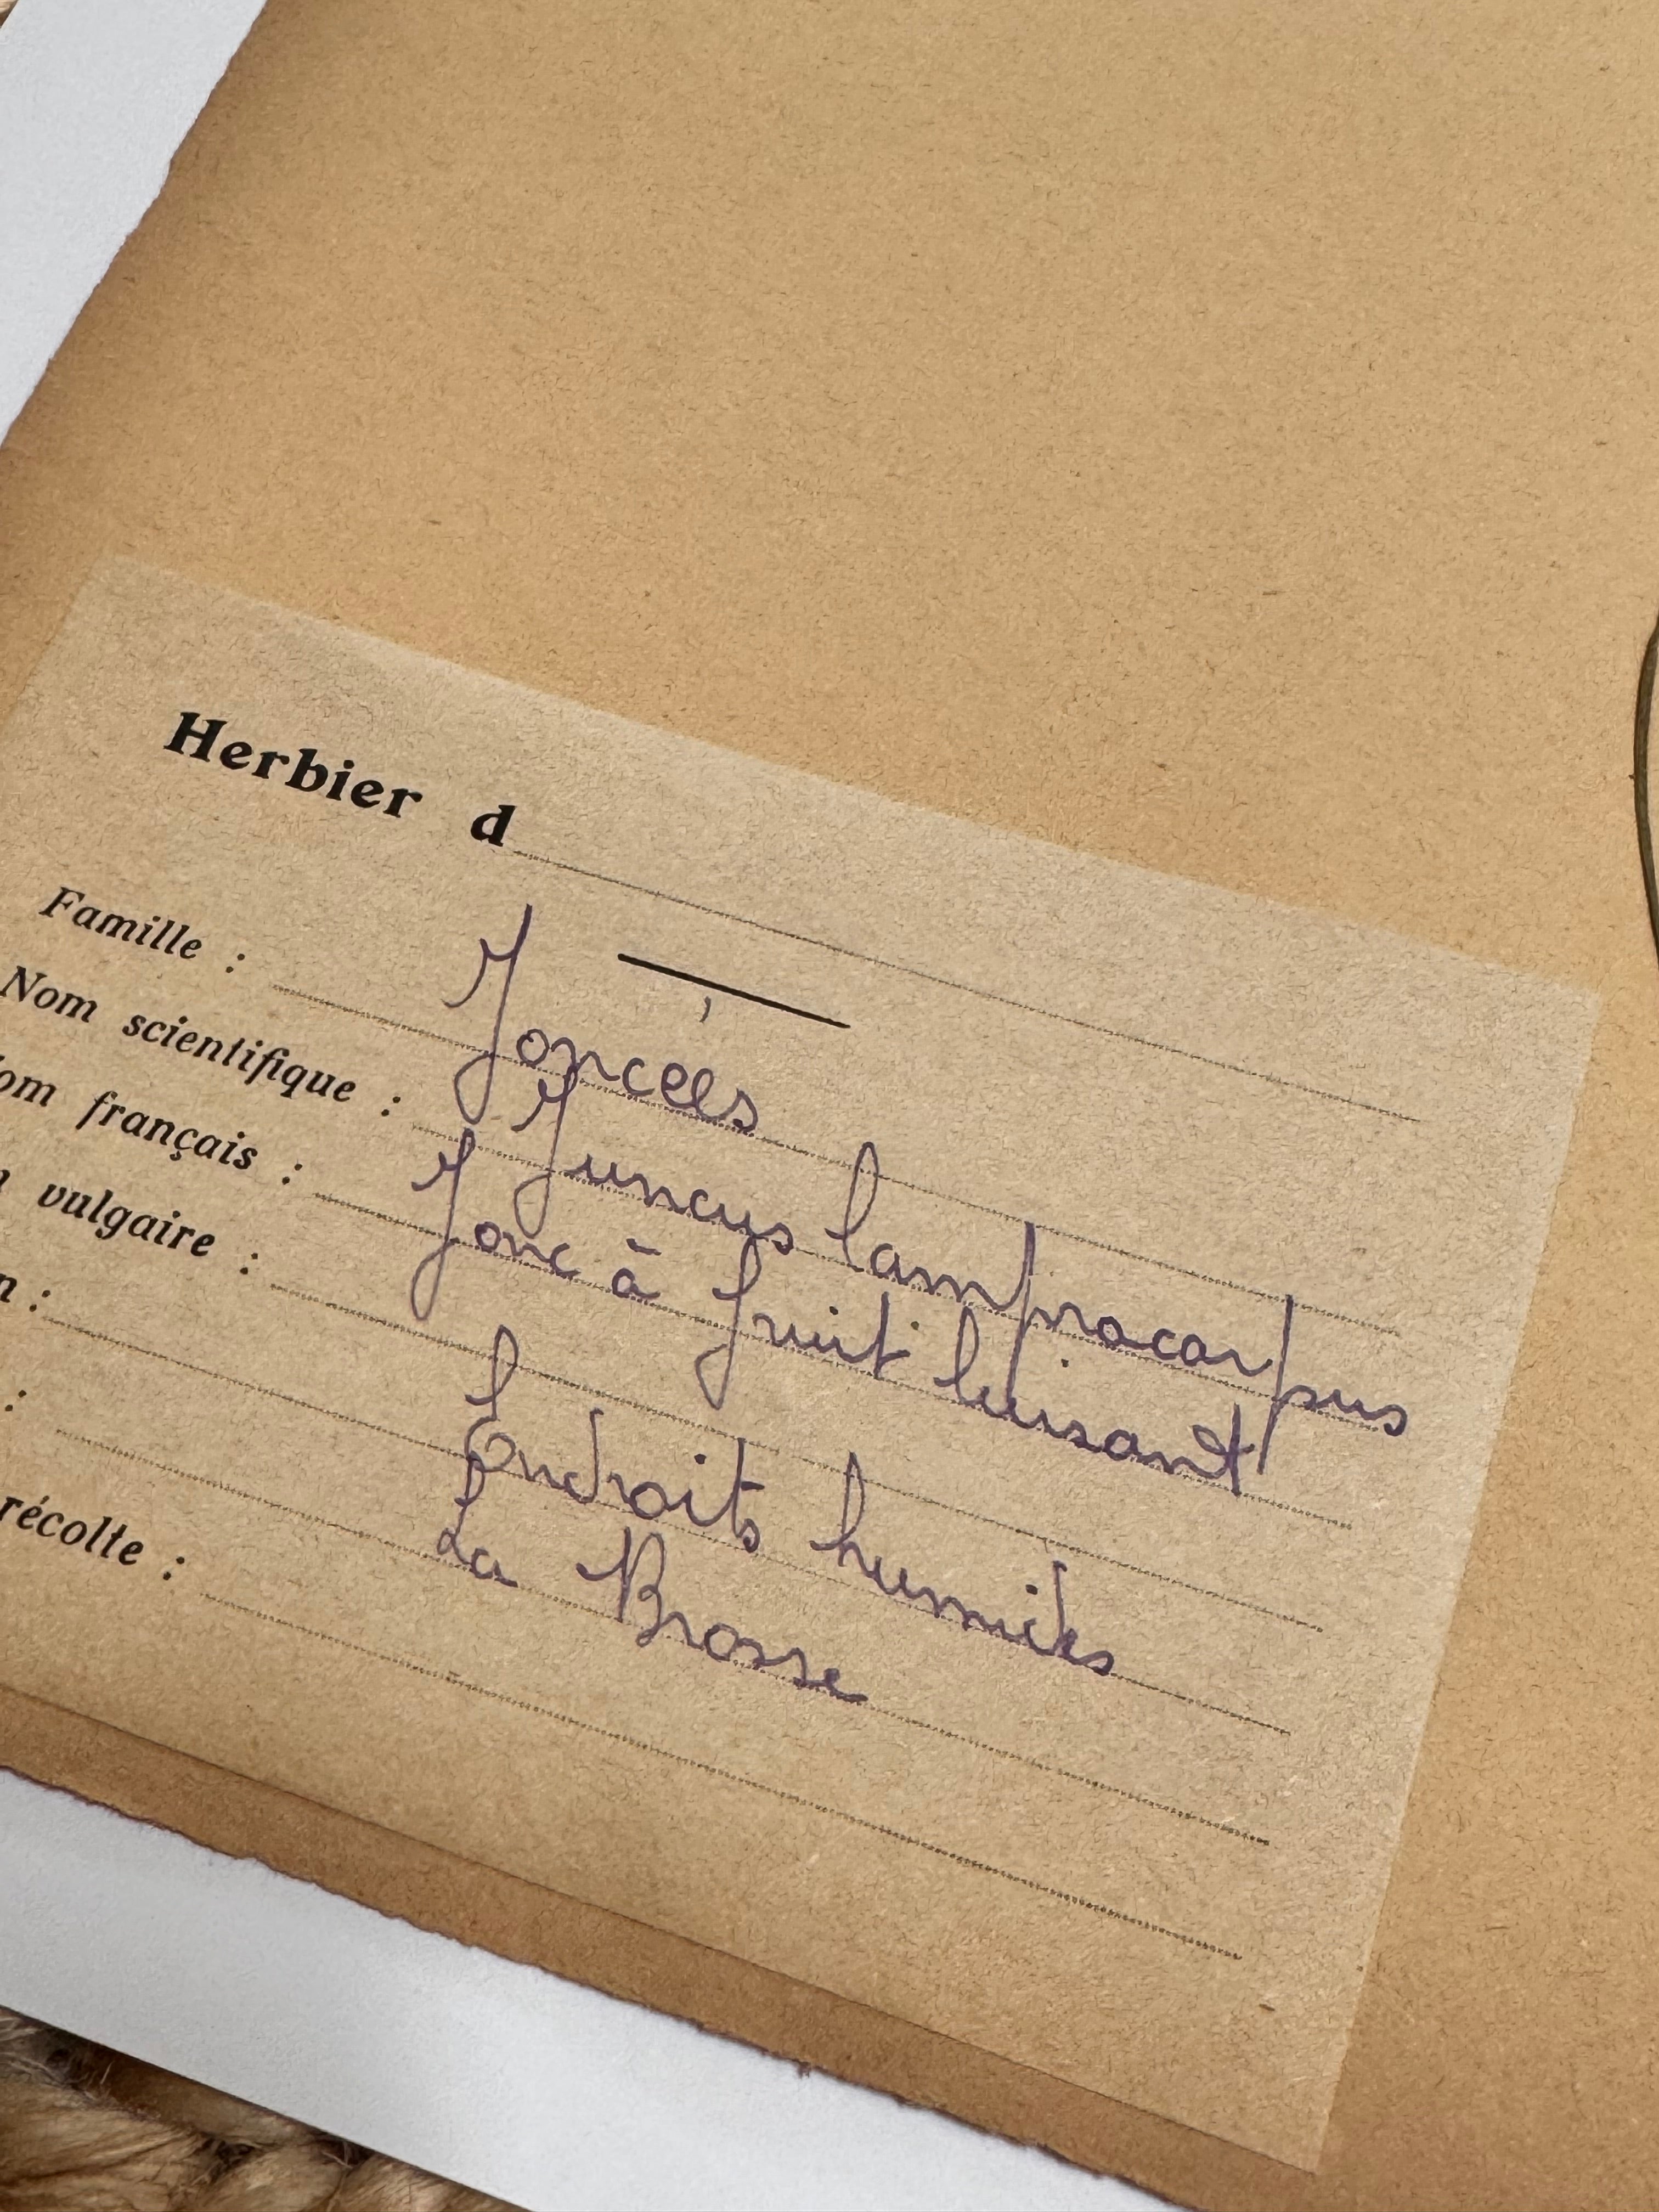 Herbier d
Famille : Joncées
Nom scientifique : Juncus lamprocarpus
om français : Jonc à fruit luisant
vulgaire :
n : Endroits humides
: La Brosse
récolte :